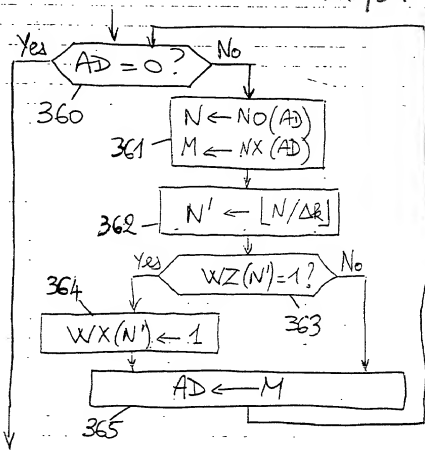 Yes
AD = 0 ?
No
360
N ← NO(AD)
M ← NX(AD)
361
N' ← ⌊N/Δk⌋
362
Yes
WZ(N')=1?
No
363
364
WX(N') ← 1
AD ← M
365